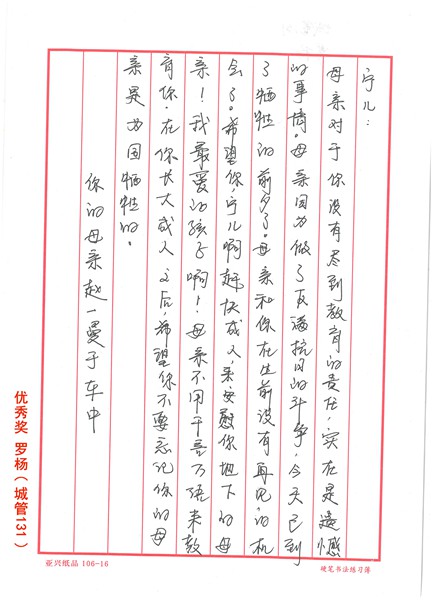 宁儿：
母亲对于你没有尽到教育的责任，实在是遗憾
的事情。母亲因为做了反满抗日的斗争，今天已到
了牺牲的前夕了。母亲和你在生前没有再见的机
会了。希望你，宁儿啊赶快成人，来安慰你地下的母
亲！我最爱的孩子啊！母亲不用千言万语来教
育你，在你长大成人之后，希望你不要忘记你的母
亲是为国牺牲的。
你的母亲赵一曼于车中
优秀奖 罗杨（城管131）
亚兴纸品 106-16
硬笔书法练习簿